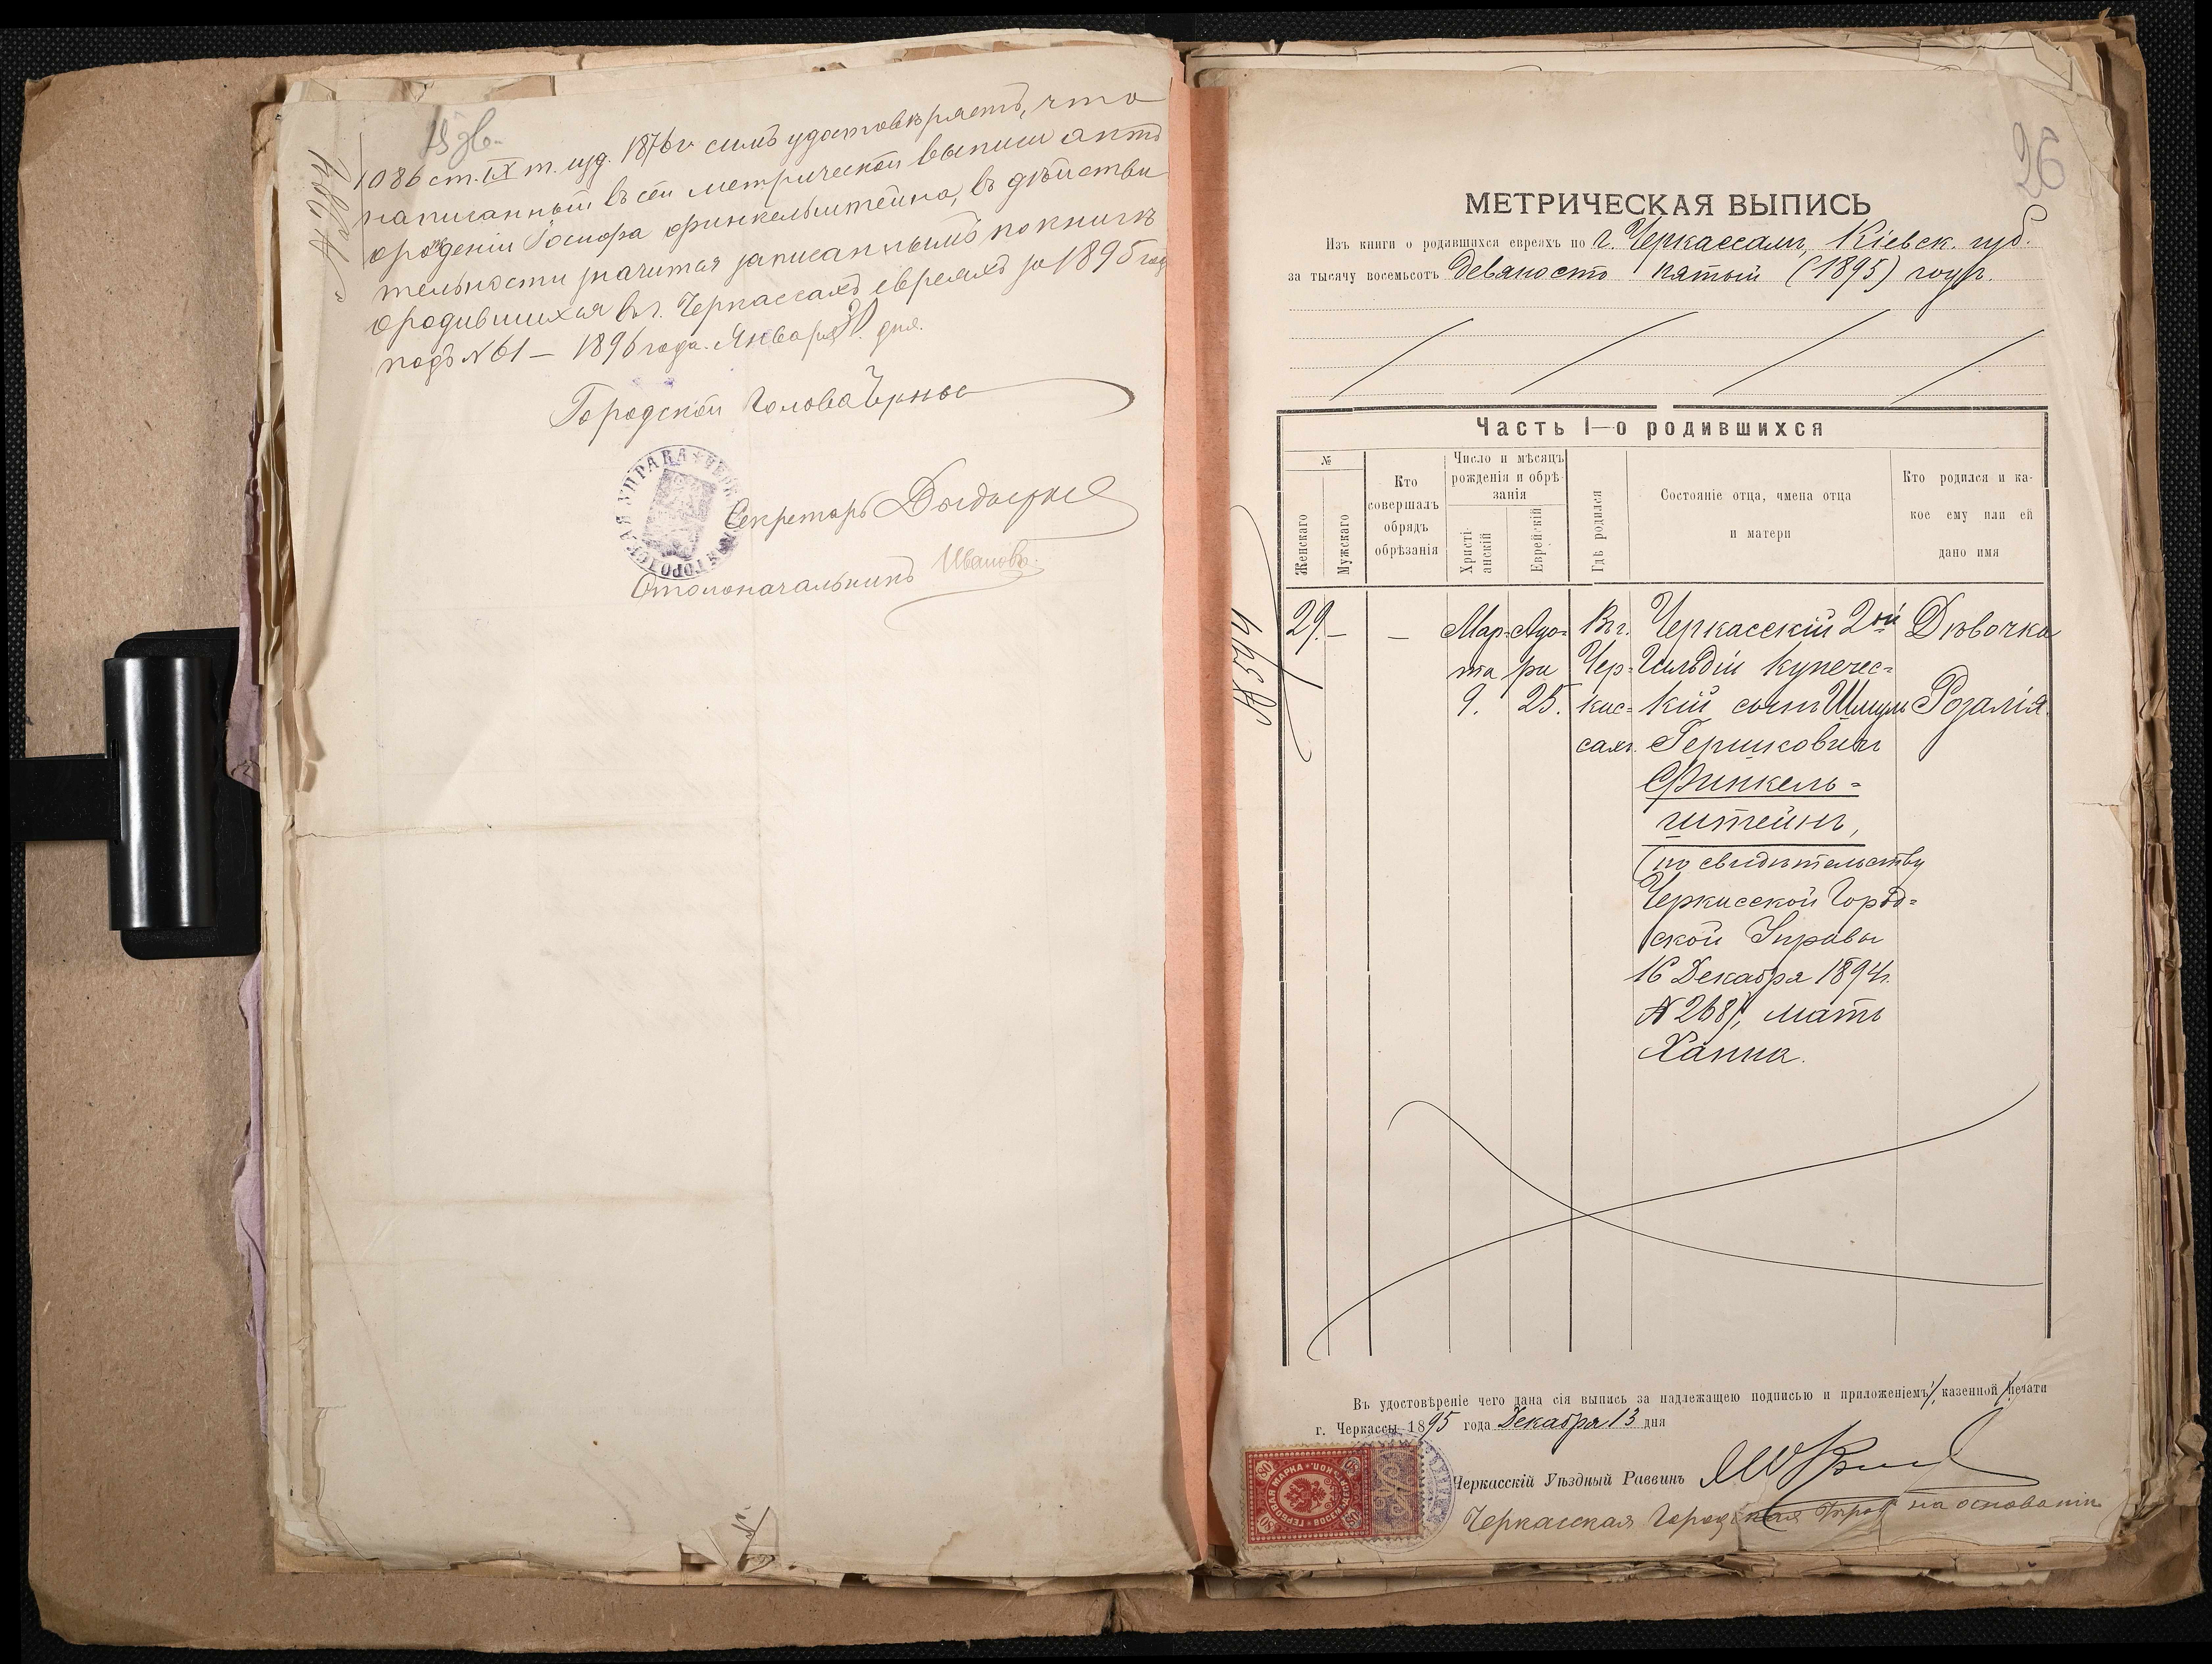 1086 ст. IX т. изд. 1876 г. симъ удостовѣряетъ, что
написанный въ сей метрической выписи актъ
о рожденіи Іосифа Финкельштейна, въ дѣйстви
тельности значится записаннымъ по книгѣ
о родившихся въ г. Черкассахъ евреяхъ за 1895 годъ
подъ № 61 — 1896 года. Января дня.
Городской Голова
ГОРОДСКАЯ УПРАВА
Секретарь
Столоначальникъ Ивановъ
26
МЕТРИЧЕСКАЯ ВЫПИСЬ
Изъ книги о родившихся евреяхъ по г. Черкассамъ, Кіевск. губ.
за тысячу восемьсотъ девяносто пятый (1895) годъ.
Часть I—о родившихся
№
Женскаго
Мужскаго
Кто
совершалъ
обрядъ
обрѣзанія
Число и мѣсяцъ
рожденія и обрѣ-
занія
Христі-
анскій
Еврейскій
Гдѣ родился
Состояніе отца, имена отца
и матери
Кто родился и ка-
кое ему или ей
дано имя
№ 594
29. — —
Мар-
та
9.
Адо-
ра
25.
Въ г.
Чер-
кас-
сахъ.
Черкасскій 2ой
Гильдіи купечес-
кій сынъ Шмуль
Гершковичъ
Финкель-
штейнъ,
(по свидѣтельству
Черкасской Город-
ской Управы
16 Декабря 1894 г.
№ 268), мать
Ханна.
Дѣвочка
Розалія.
Въ удостовѣреніе чего дана сія выпись за надлежащею подписью и приложеніемъ казенной печати
г. Черкассы 1895 года Декабря 13 дня
ГЕРБОВАЯ МАРКА
80
Черкасскій Уѣздный Раввинъ
Черкасская Городская Управа на основаніи